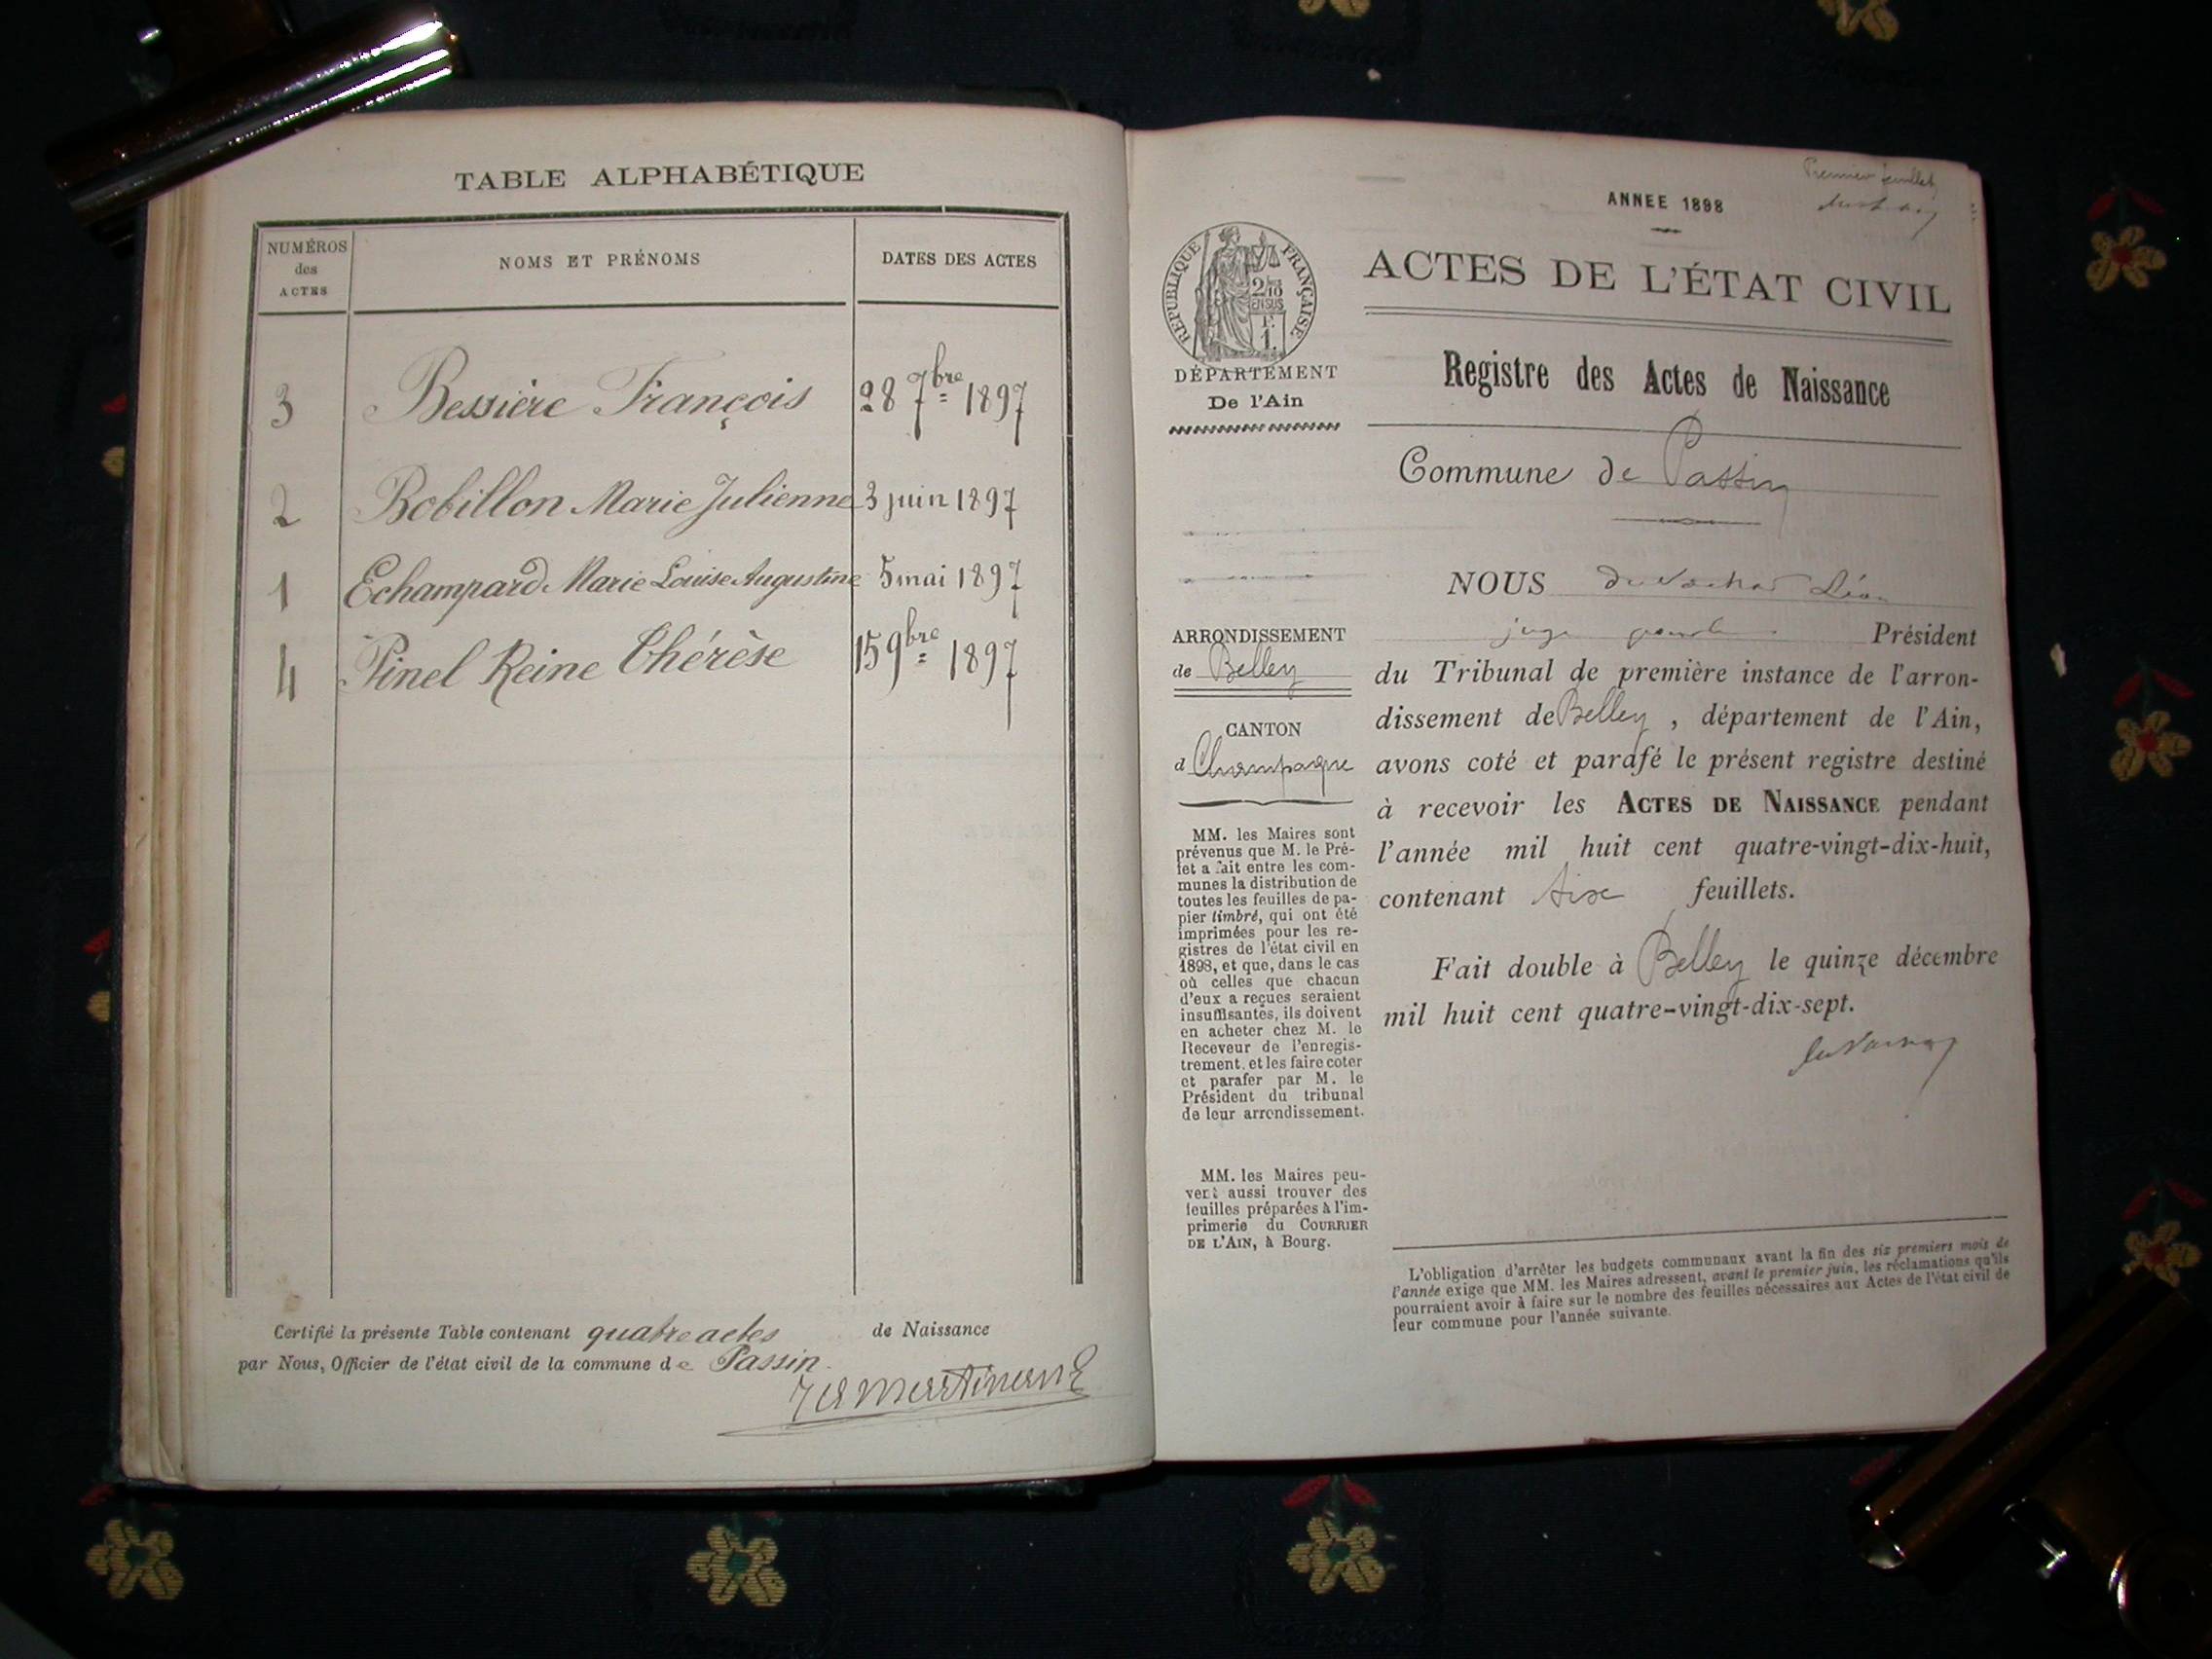 TABLE ALPHABÉTIQUE
NUMÉROS des ACTES
NOMS ET PRÉNOMS
DATES DES ACTES
3 Bessière François 28 7bre 1897
2 Bobillon Marie Julienne 3 juin 1897
1 Echampard Marie Louise Augustine 5 mai 1897
4 Pinel Reine Thérèse 15 9bre 1897
Certifié la présente Table contenant quatre actes de Naissance
par Nous, Officier de l'état civil de la commune de Passin.
Premier feuillet
ANNEE 1898
ACTES DE L'ÉTAT CIVIL
RÉPUBLIQUE FRANÇAISE
2/10 EN SUS
F. 1.
DÉPARTEMENT
De l'Ain
Registre des Actes de Naissance
Commune de Passin
ARRONDISSEMENT
de Belley
CANTON
d Champagne
MM. les Maires sont
prévenus que M. le Pré-
fet a fait entre les com-
munes la distribution de
toutes les feuilles de pa-
pier timbré, qui ont été
imprimées pour les re-
gistres de l'état civil en
1898, et que, dans le cas
où celles que chacun
d'eux a reçues seraient
insuffisantes, ils doivent
en acheter chez M. le
Receveur de l'enregis-
trement, et les faire coter
et parafer par M. le
Président du tribunal
de leur arrondissement.
MM. les Maires peu-
vent aussi trouver des
feuilles préparées à l'im-
primerie du COURRIER
DE L'AIN, à Bourg.
NOUS Léon
juge Président
du Tribunal de première instance de l'arron-
dissement de Belley, département de l'Ain,
avons coté et parafé le présent registre destiné
à recevoir les ACTES DE NAISSANCE pendant
l'année mil huit cent quatre-vingt-dix-huit,
contenant six feuillets.
Fait double à Belley le quinze décembre
mil huit cent quatre-vingt-dix-sept.
L'obligation d'arrêter les budgets communaux avant la fin des six premiers mois de
l'année exige que MM. les Maires adressent, avant le premier juin, les réclamations qu'ils
pourraient avoir à faire sur le nombre des feuilles nécessaires aux Actes de l'état civil de
leur commune pour l'année suivante.